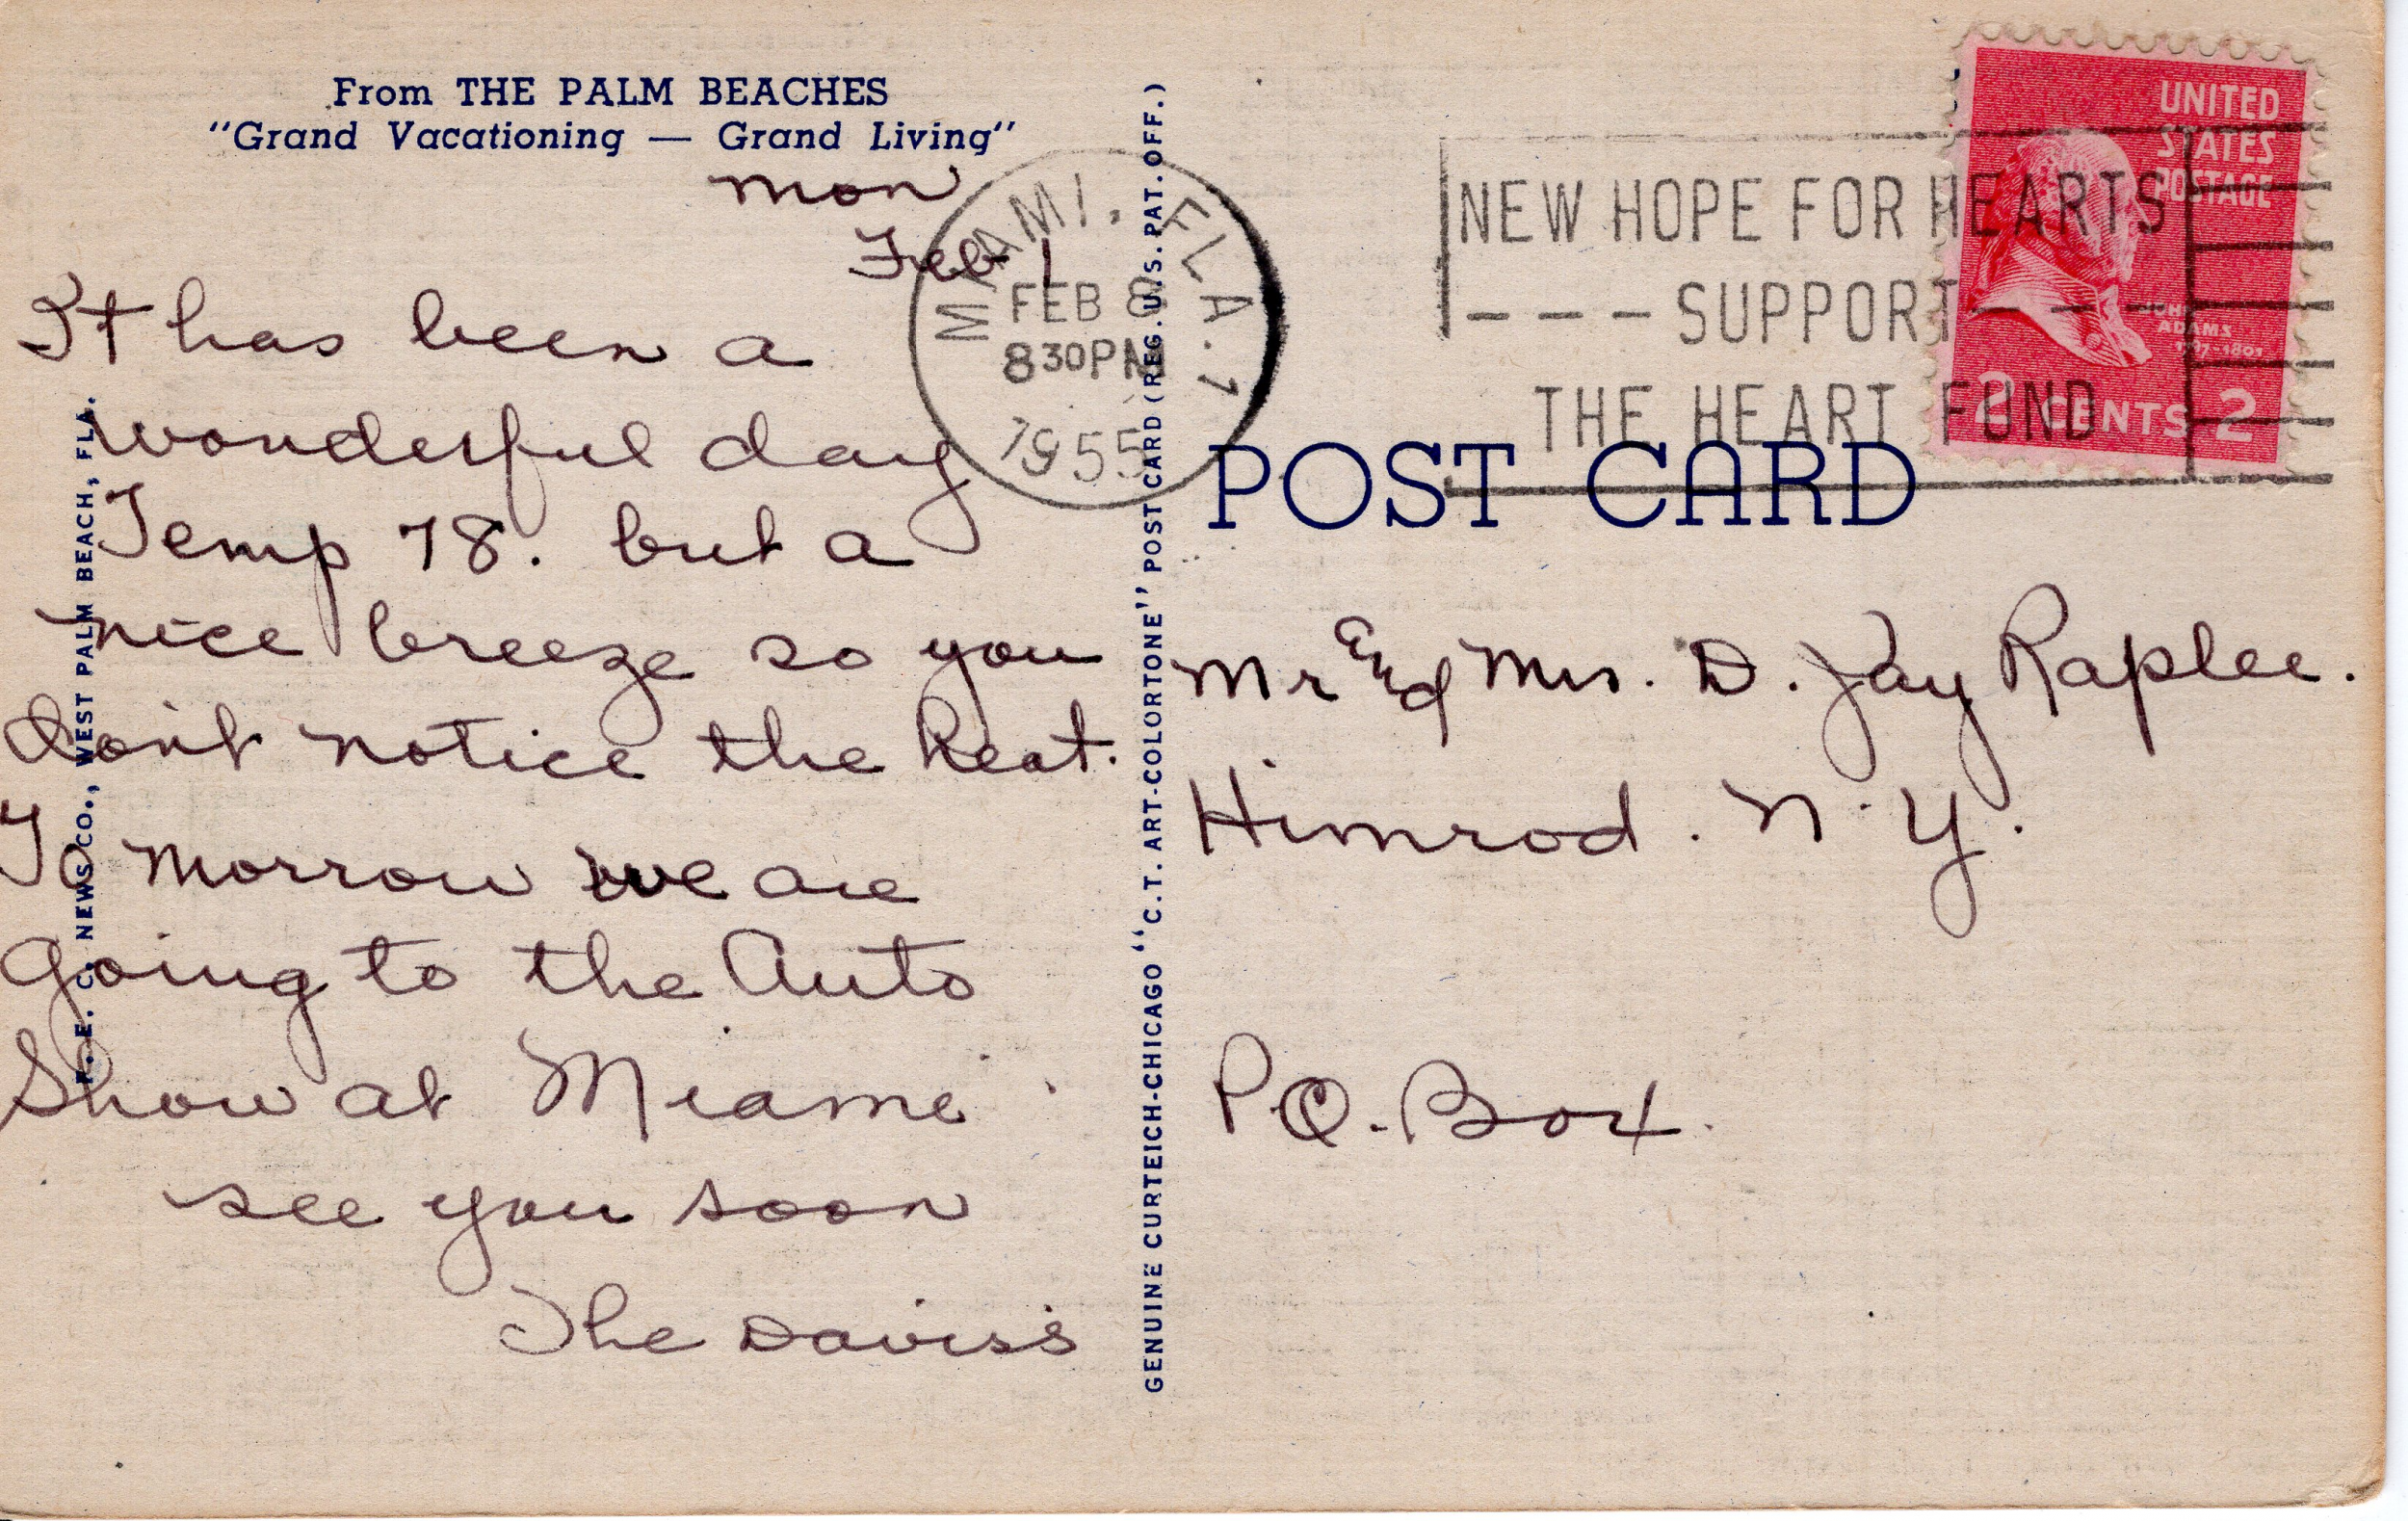 From THE PALM BEACHES
"Grand Vacationing — Grand Living"
Mon
Feb
It has been a
wonderful day
Temp 78. but a
nice breeze so you
don't notice the heat.
To morrow we are
going to the Auto
Show at Miami
see you soon
The Davis's
F. E. C. NEWS CO., WEST PALM BEACH, FLA.
GENUINE CURTEICH-CHICAGO "C.T. ART-COLORTONE" POST CARD (REG. U.S. PAT. OFF.)
MIAMI, FLA. 1
FEB 8
830PM
1955
NEW HOPE FOR HEARTS
- - - SUPPORT - - -
THE HEART FUND
UNITED
STATES
POSTAGE
JOHN
ADAMS
1797-1801
2 CENTS 2
POST CARD
Mr and Mrs. D. Jay Raplee.
Himrod. N.Y.
P.O. Box.